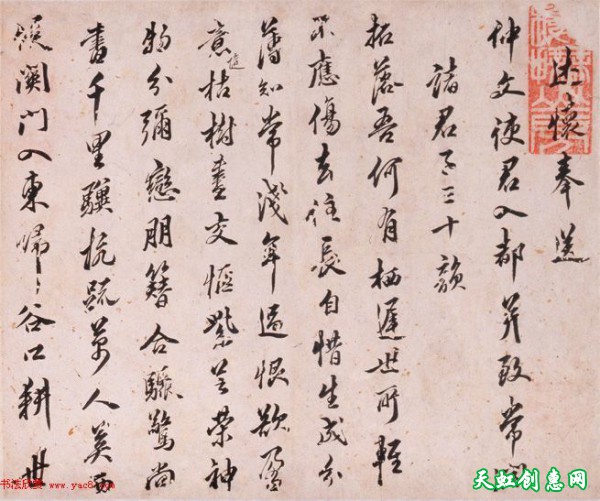 述懷奉送
仲文使君入都并致常山
諸君子三十韻
拓落吾何有栖遲世所輕
不應傷去住長自惜生成分
薄知常淺年過恨欲盈
意枯樹交紫芝榮神
物分彌戀朋簪合驟驚尚
書千里驥抗疏萬人英
門入東歸谷口耕
书法欣赏 www.yac8.com
天虹创惠网